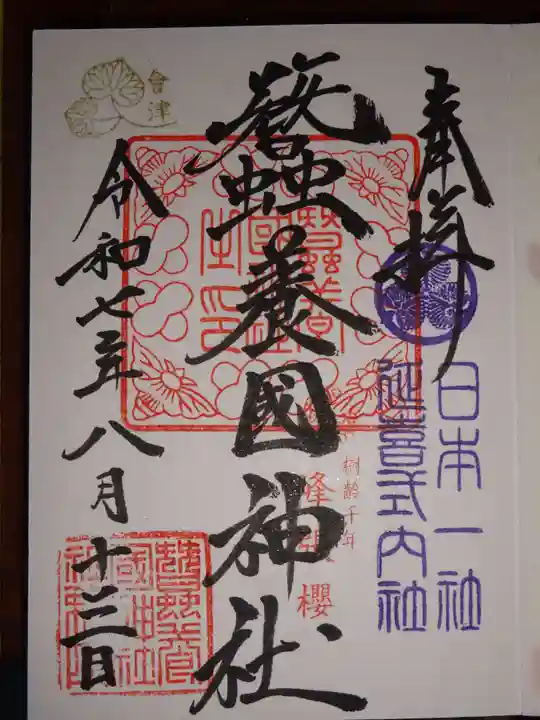 奉拝
日本一社
延喜式内社
樹齢千年
峰張櫻
蠶養國神社
會津
令和七年八月十三日
蠶養國神社之印